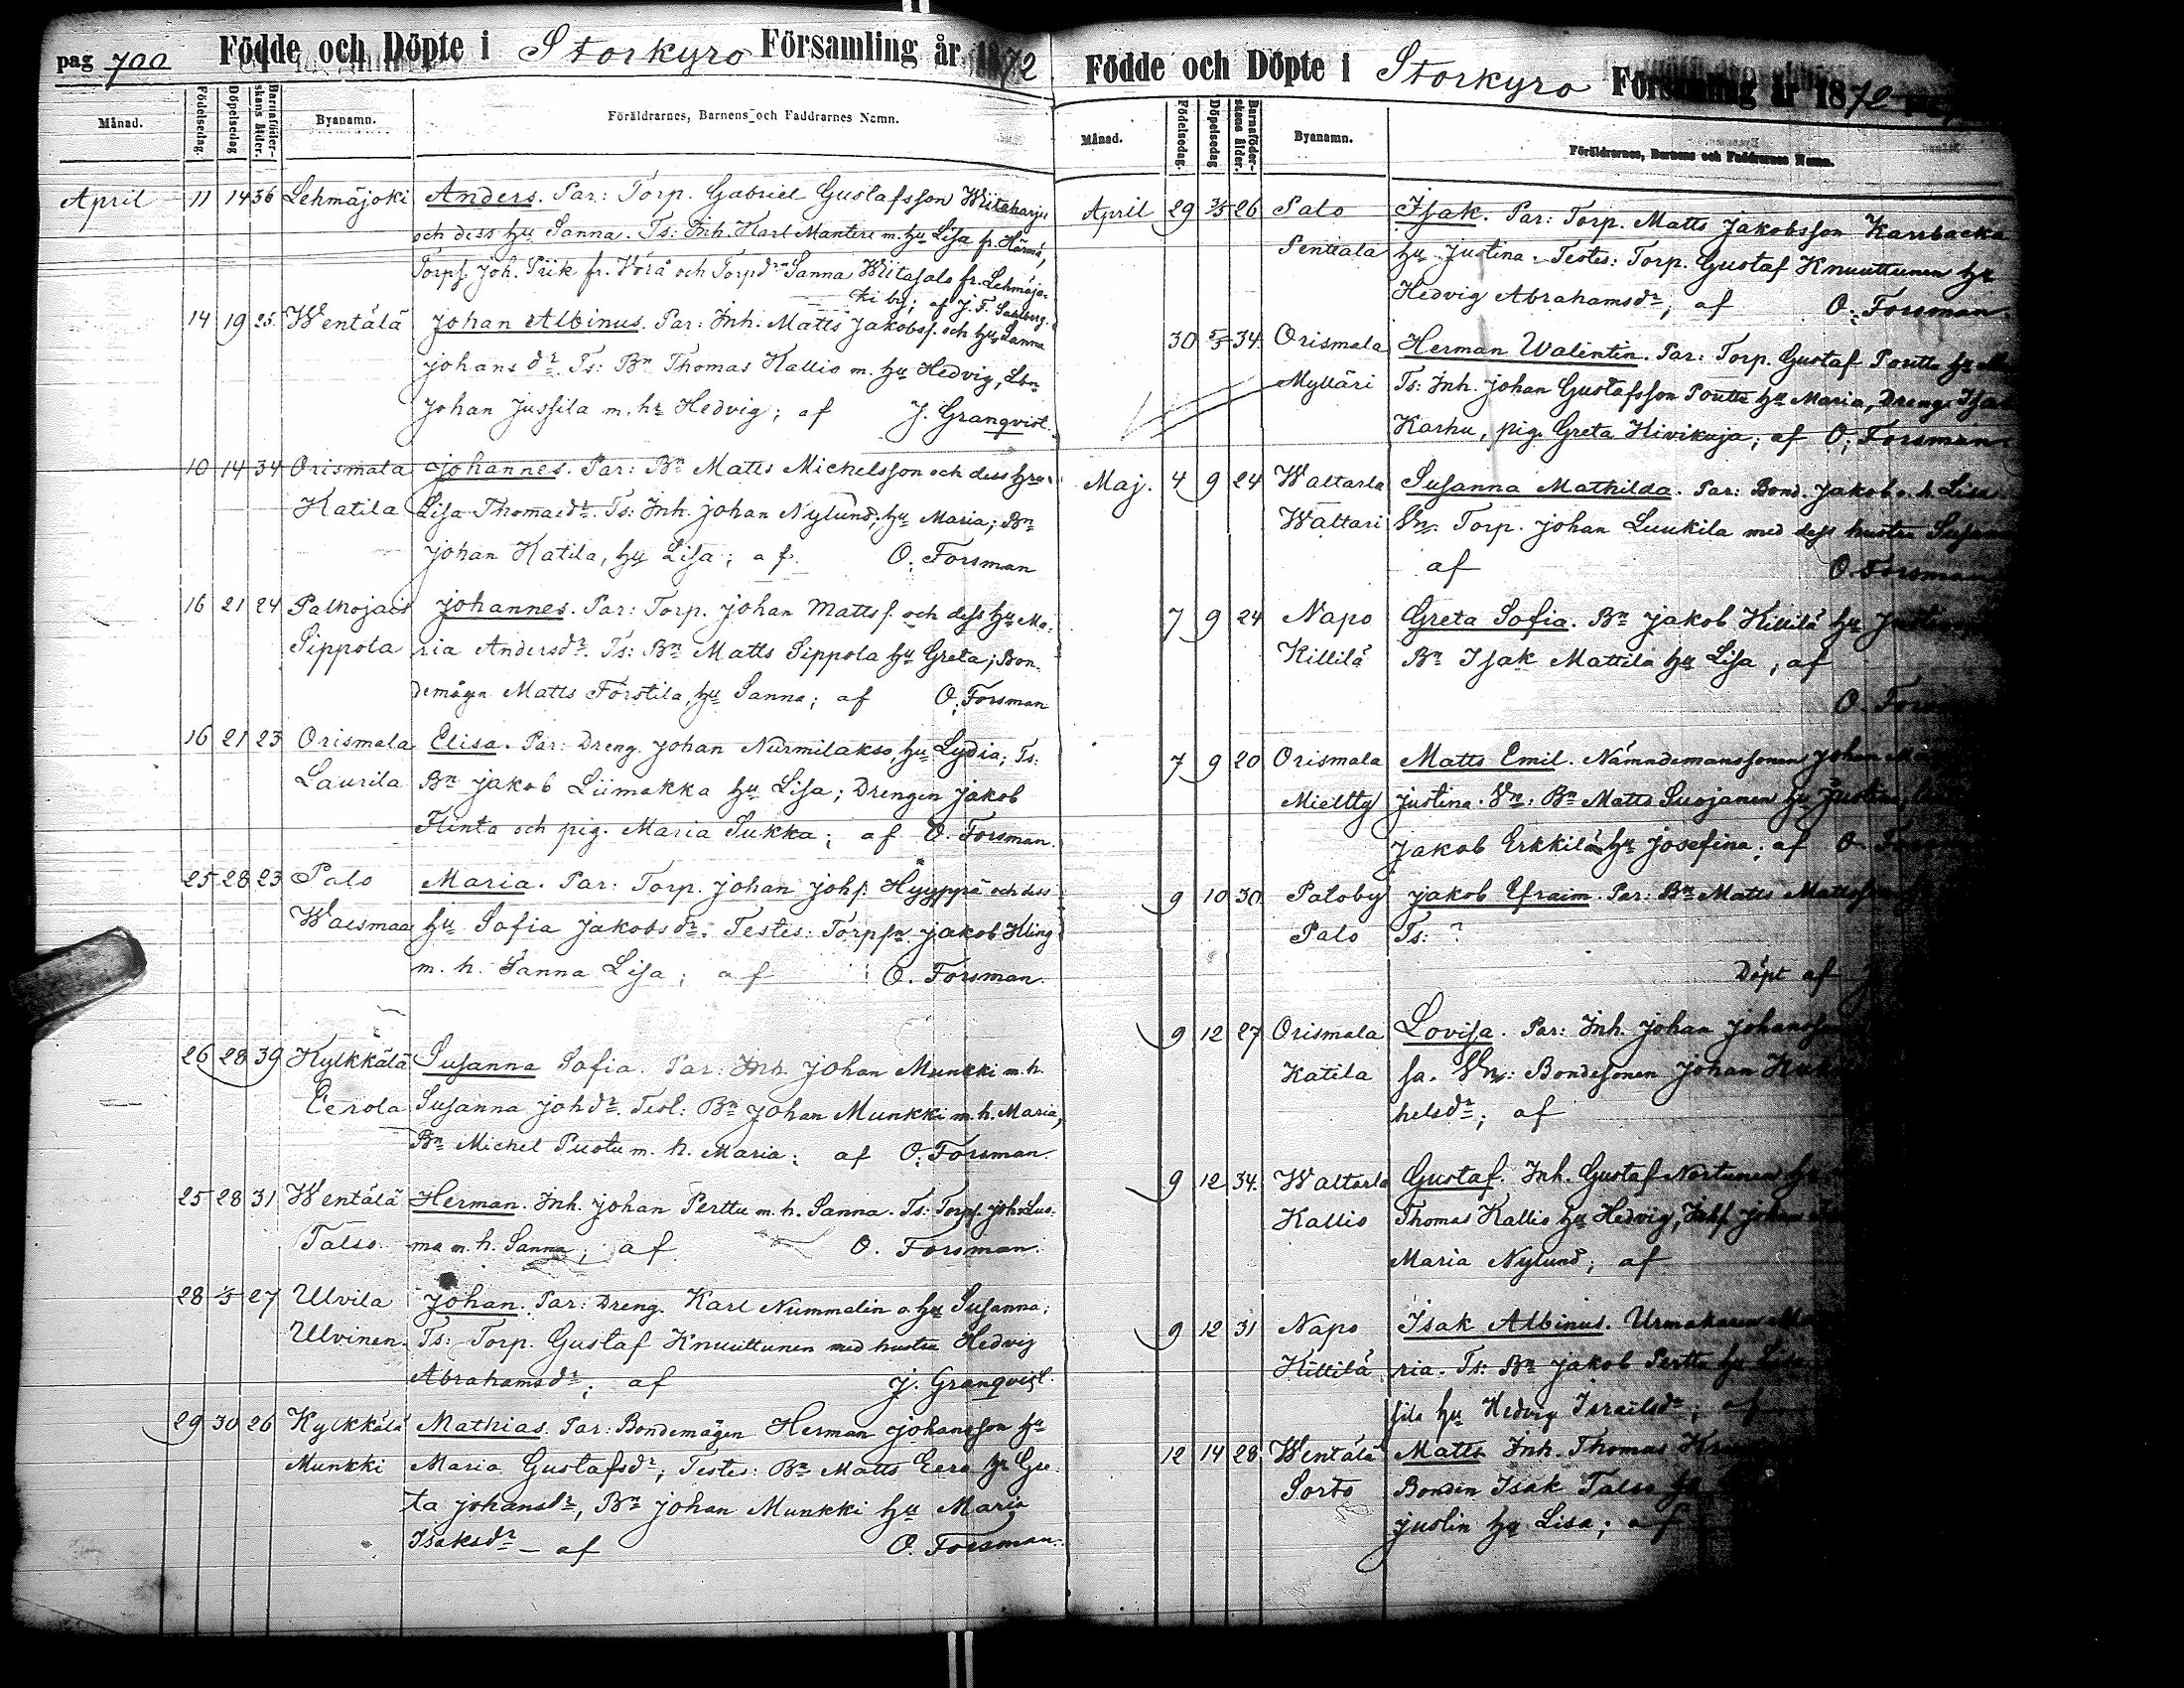 pag 700 Födde och Döpte i Storkyro Församling år 1872
Månad. Födelsedag. Döpelsedag Barnaföderskans ålder. Byanamn. Föräldrarnes, Barnens och Faddrarnes Namn.
April 11 14 36 Lehmäjoki Anders. Par: Torp. Gabriel Gustafsson Wiitaharju
och dess hu Sanna. Ts: Inh. Karl Mantere m. hu Lisa fr. Härmä,
Torpf. Joh. Piik fr. Vörå och Torpdr Sanna Wiitasalo fr. Lehmäjo-
ki by; af J. F. Salberg.
14 19 25. Wentälä Johan Albinus. Par: Inh. Matts Jakobsf. och hu Sanna
Johansdr. Ts: Bn Thomas Kallio m. hu Hedvig, Lbn
Johan Jussila m. hr Hedvig; af J. Granqvist.
10 14 34 Orismala Johannes. Par: Bn Matts Michelsson och dess hru
Katila Lisa Thomasdr. Ts: Inh. Johan Nylund; hu Maria; Bn
Johan Katila, hu Lisa; af. O. Forsman
16 21 24 Palhojais Johannes. Par: Torp. Johan Mattsf. och dess hu Ma-
Sippola ria Andersdr. Ts: Bn Matts Sippola hu Greta; Bon-
demågn Matts Förstila, hu Sanna; af O. Forsman
16 21 23 Orismala Elisa. Par: Dreng. Johan Nurmilakso, hu Lydia; Ts:
Laurila Bn Jakob Liimakka hu Lisa; Drengen Jakob
Hinta och pig. Maria Sukka; af O. Forsman.
25 28 23 Palo Maria. Par: Torp. Johan Johf. Hyyppä och dess
Waismaa hu Sofia Jakobsdr. Testes: Torpfn. Jakob Kling
m. h. Sanna Lisa; af O. Forsman.
26 28 39 Kylkkälä Susanna Sofia. Par: Inh. Johan Munkki m. h.
Eerola Susanna Johdr. Test: Bn Johan Munkki m. h. Maria,
Bn Michel Puotu m. h. Maria; af O. Forsman.
25 28 31 Wentälä Herman. Inh. Johan Perttu m. h. Sanna. Ts: Torpf. Joh. Luo-
Talso ma m. h. Sanna; af O. Forsman.
28 1/5 27 Ulvila Johan. Par: Dreng. Karl Nummelin o. hu Susanna;
Ulvinen. Ts: Torp. Gustaf Knuuttunen med hustru Hedvig
Abrahamsdr; af J. Granqvist.
29 30 26 Kylkkälä Mathias. Par: Bondemågen Herman Johansson hu
Munkki Maria Gustafsdr; Testes: Bn Matts Eero hr Gre-
ta Johansdr, Bn Johan Munkki hu Maria
Isaksdr – af O. Forsman.
Födde och Döpte i Storkyro Församling år 1872
Månad. Födelsedag. Döpelsedag Barnaföderskans ålder. Byanamn. Föräldrarnes, Barnens och Faddrarnes Namn.
April 29 3/5 26 Palo Isak. Par: Torp. Matts Jakobsson Karrbacka
Pentiala hu Justina. Testes: Torp. Gustaf Knuuttunen hu
Hedvig Abrahamsdr; af O. Forsman.
30 5/5 34. Orismala Herman Walentin. Par: Torp. Gustaf Poutto hu
Mylläri Ts: Inh. Johan Gustafsson Poutto hu Maria, Dreng. Isak
Karhu, pig. Greta Kivikuja; af O. Forsman.
Maj. 4 9 24 Waltarla Susanna Mathilda. Par: Bond. Jakob o. h. Lisa
Waltari Vn: Torp. Johan Luukila med dess hustru
af O. Forsman
7 9 24 Napo Greta Sofia. Bn Jakob Killilä hu
Killilä Bn Isak Mattila hu Lisa; af
O.
7 9 20 Orismala Matts Emil. Nämndemanssonen Johan
Mieltty Justina. Vn: Bn Matts Suojanen hu Justina,
Jakob Erkkilä hu Josefina; af O.
9 10 30. Paloby Jakob Efraim. Par: Bn Matts
Palo Ts: ?
Döpt af
9 12 27 Orismala Lovisa. Par: Inh. Johan
Katila sa. Vn: Bondesonen Johan
helsdr; af
9 12 34. Waltarla Gustaf. Inh. Gustaf Nortunen hu
Kallio Thomas Kallio hu Hedvig,
Maria Nylund; af
9 12 31 Napo Isak Albinus. Urmakaren
Killilä ria. Ts: Bn Jakob Pertta hu
sila hu Hedvig Israelsdr; af
12 14 28 Wentälä Matts Inh. Thomas
Sorto Bonden Isak Talso hu
Justin hu Lisa; af